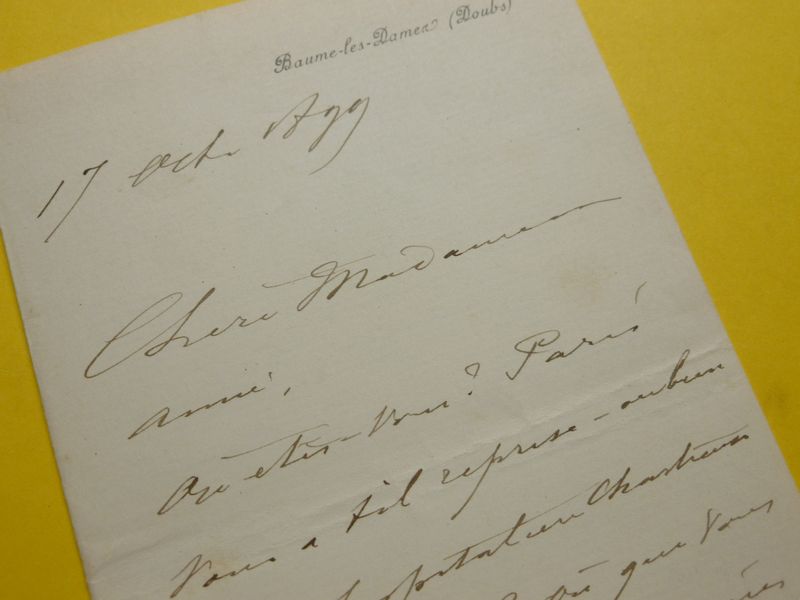 Baume-les-Dames (Doubs)
17 Oct. Agg
Chère Madame
amie,
Où êtes-vous? Paris
Vous a t il reprise - ou bien
hospitalier Chasteau
où que vous